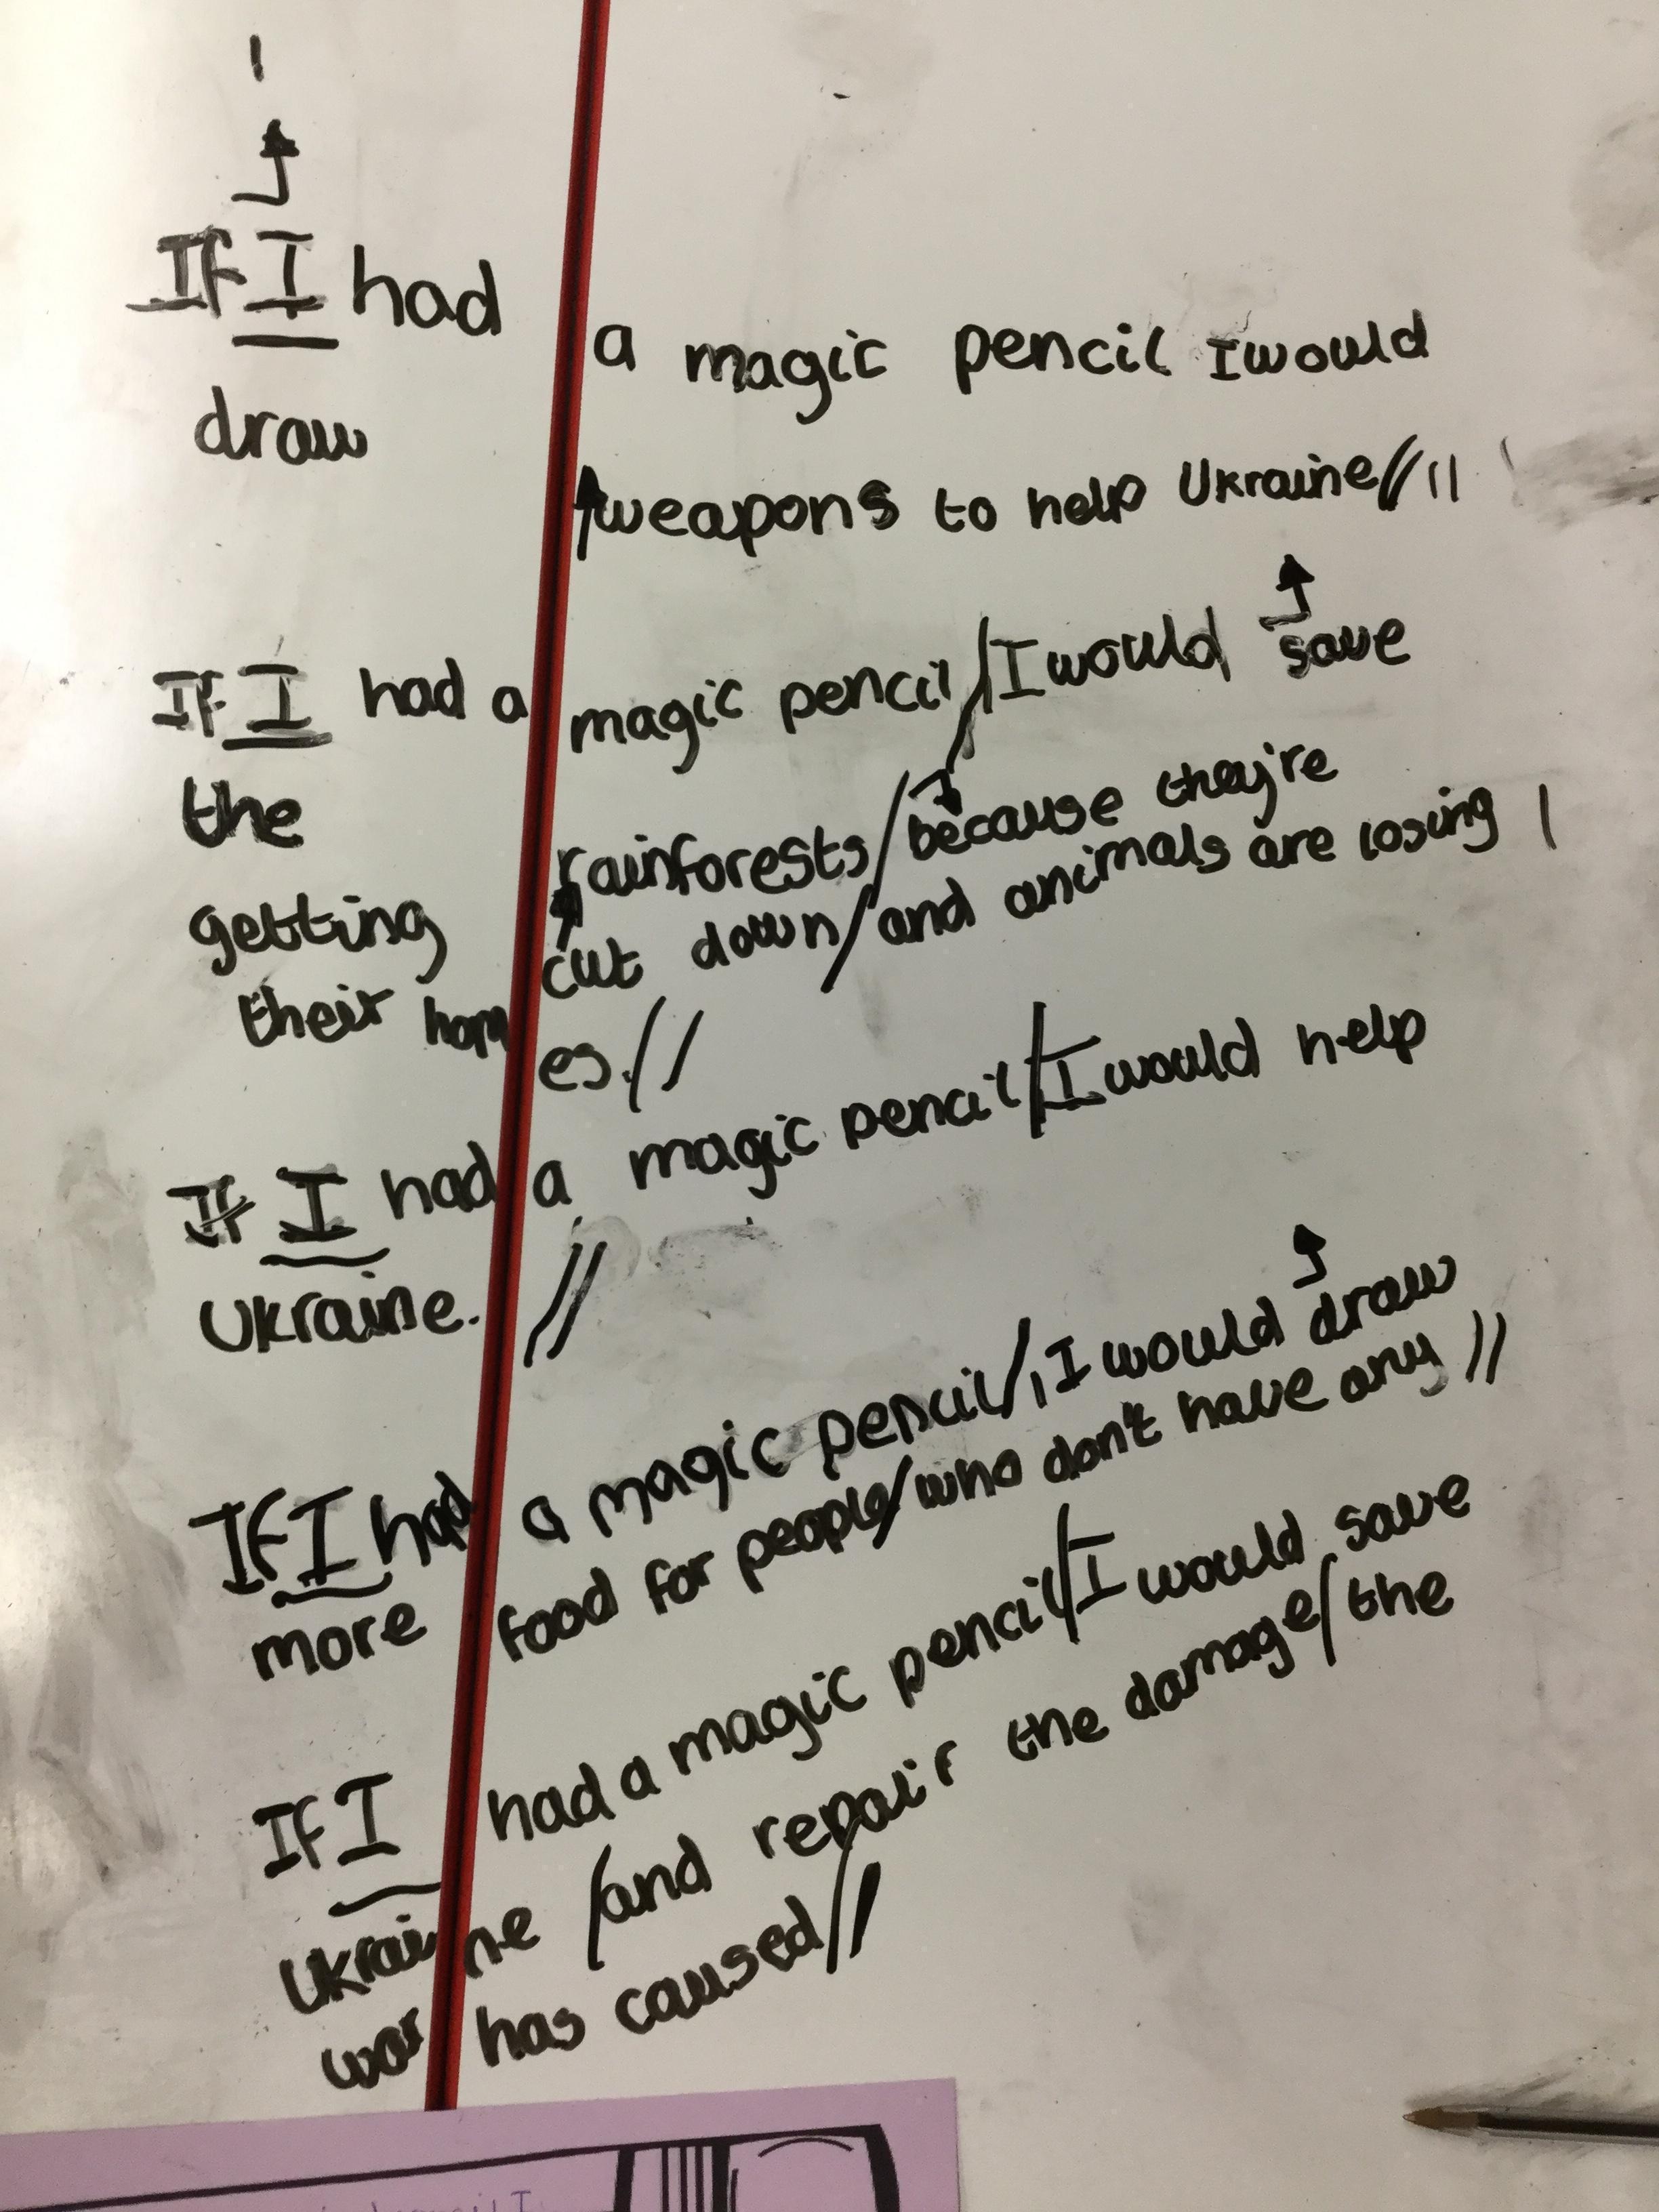 If I had a magic pencil I would
draw weapons to help Ukraine // 11
If I had a magic pencil / I would save
the rainforests / because they're
getting cut down / and animals are losing
their homes. //
If I had a magic pencil / I would help
Ukraine. //
If I had a magic pencil /, I would draw
more food for people / who don't have any //
If I had a magic pencil / I would save
Ukraine / and repair the damage / the
war has caused //